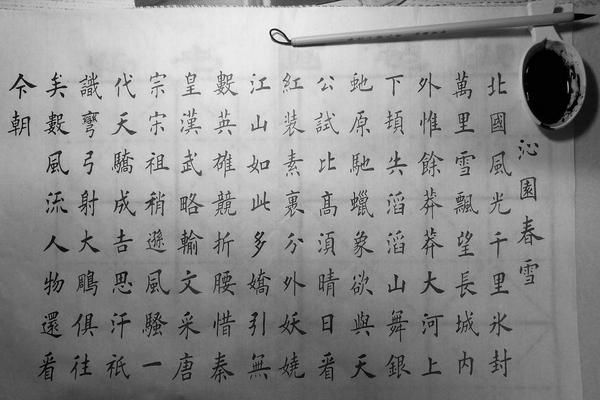 沁園春雪
北國風光千里氷封
萬里雪飄望長城内
外惟餘莽莽大河上
下頓失滔滔山舞銀
虵原馳蠟象欲與天
公試比髙湏晴日㸔
紅装素裹分外妖嬈
江山如此多嬌引無
數英雄競折腰惜秦
皇漢武略輸文采唐
宗宋祖稍遜風騷一
代天驕成吉思汗祇
識彎弓射大鵰俱往
矣數風流人物還㸔
今朝